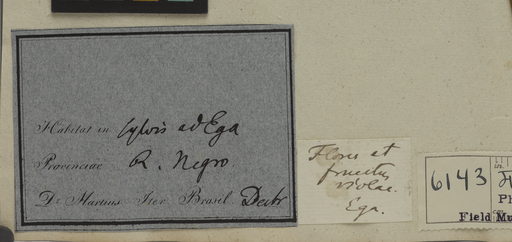 Habitat in sylvis ad Ega
Provinciae R. Negro
Dr. Martius Iter Brasil. Decbr
Flores et
fructus
violac.
Ega.
6143
Field Mu